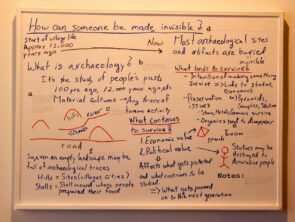 How can someone be made invisible? a
Start of village life
Approx 12,000
years ago
Now
Most archaeological sites
and artifacts are buried
invisible
What is archaeology?
b
It's the study of people's pasts
100 yrs ago, 12,000 years ago, etc
Material cultures → Any trace of
human activity
a
b
c
river
road
So, even an empty landscape may be
full of archaeological traces
Hills = Sites (villages cities)
Shells = Shell mound where people
prepared their food
What tends to survive?
- Intention of making something
survive → Links to status,
- Preservation →
- Organics tend to disappear
What continues
to survive?
1. Economic value
2. Political value
Tourism
Affects what gets protected
and what continues to be
studied
→ What gets passed on
to the next generation
Statues may be
destroyed to
demoralise people
Notes: